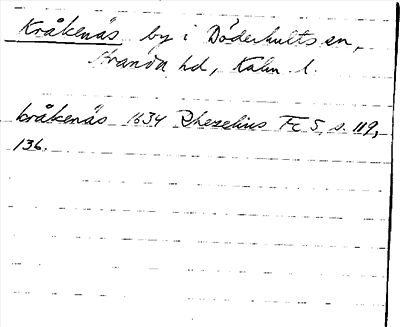 Kråkenäs by i Döderhults sn,
Stranda hd, Kalm. l.
kråkenäs 1634 Rhezelius Fc 5, s. 119,
136.